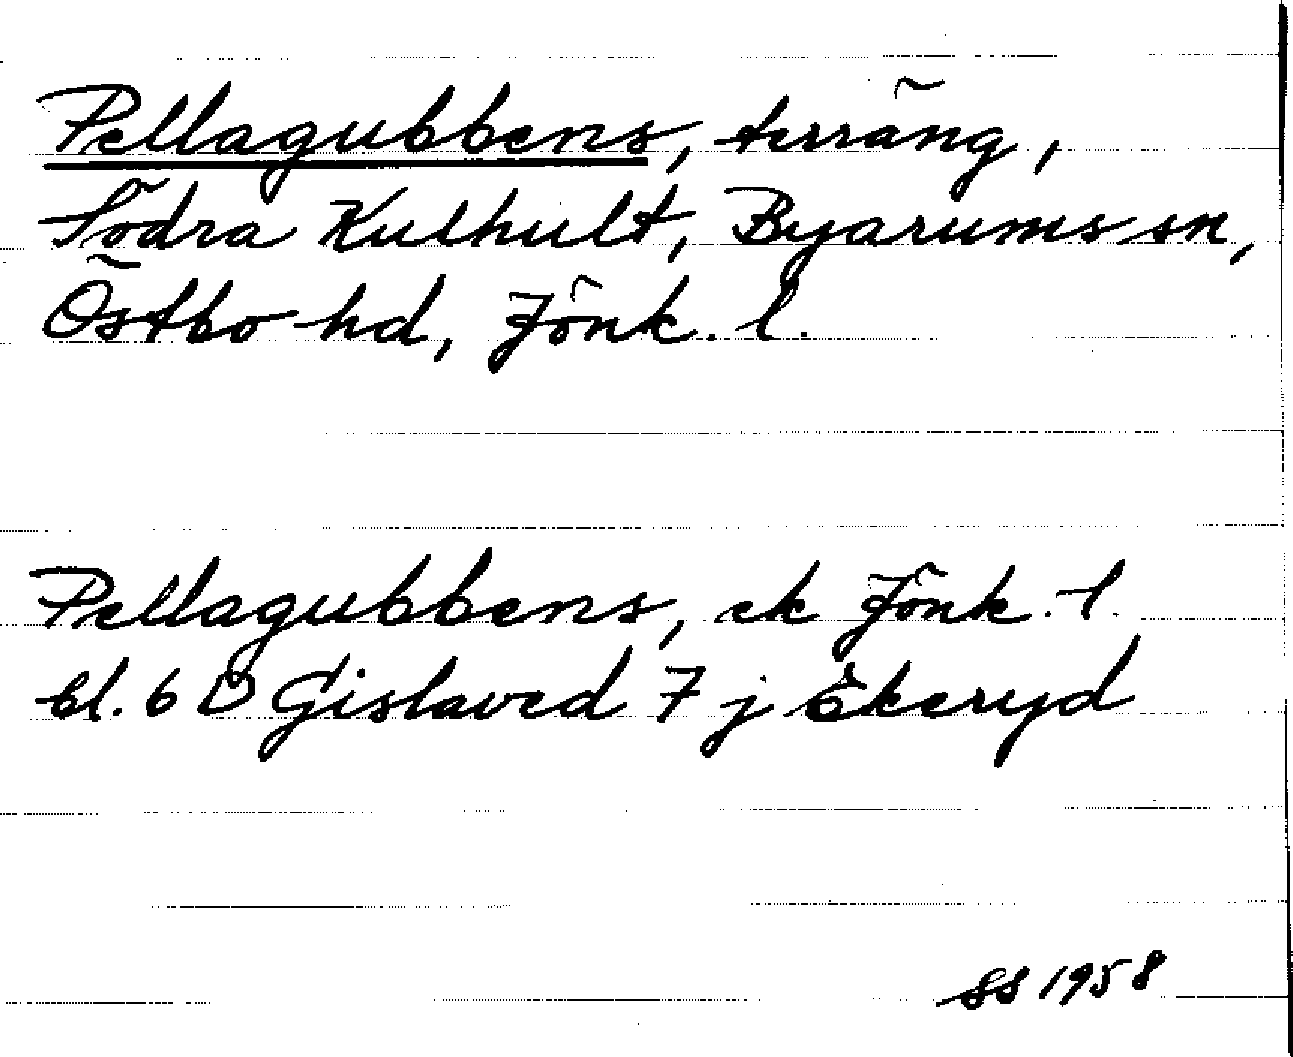 Pellagubbens, terräng,
Södra Kulhult, Byarums sn,
Östbo hd, Jönk. l.
Pellagubbens, ek Jönk. l.
bl. 6 D Gislaved 7 j Ekeryd
SS 1958